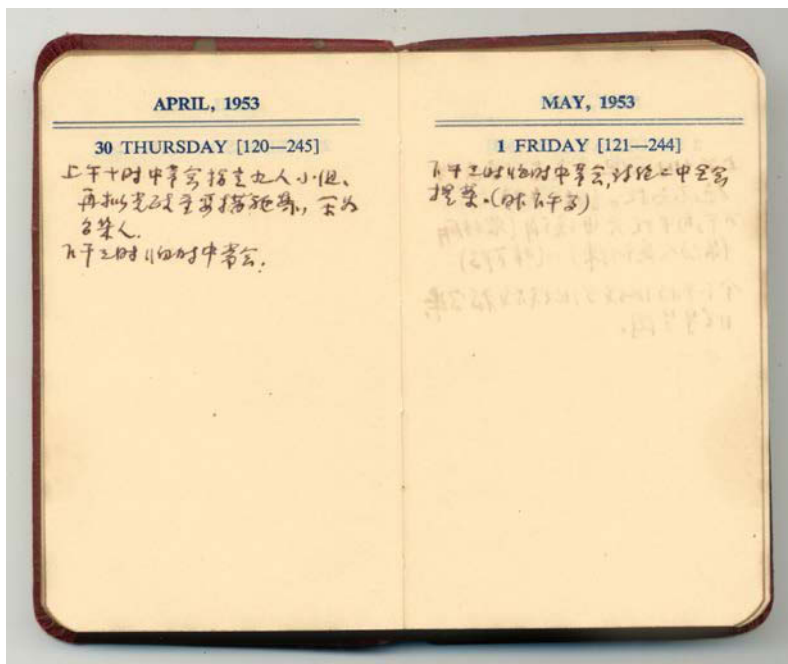 APRIL, 1953
30 THURSDAY [120—245]
上午十时中常会指定九人小组、
再拟党政主要措施案，余为
召集人.
下午三时临时中常会.
MAY, 1953
1 FRIDAY [121—244]
下午三时临时中常会,讨论二中全会
提案.(时下午多)